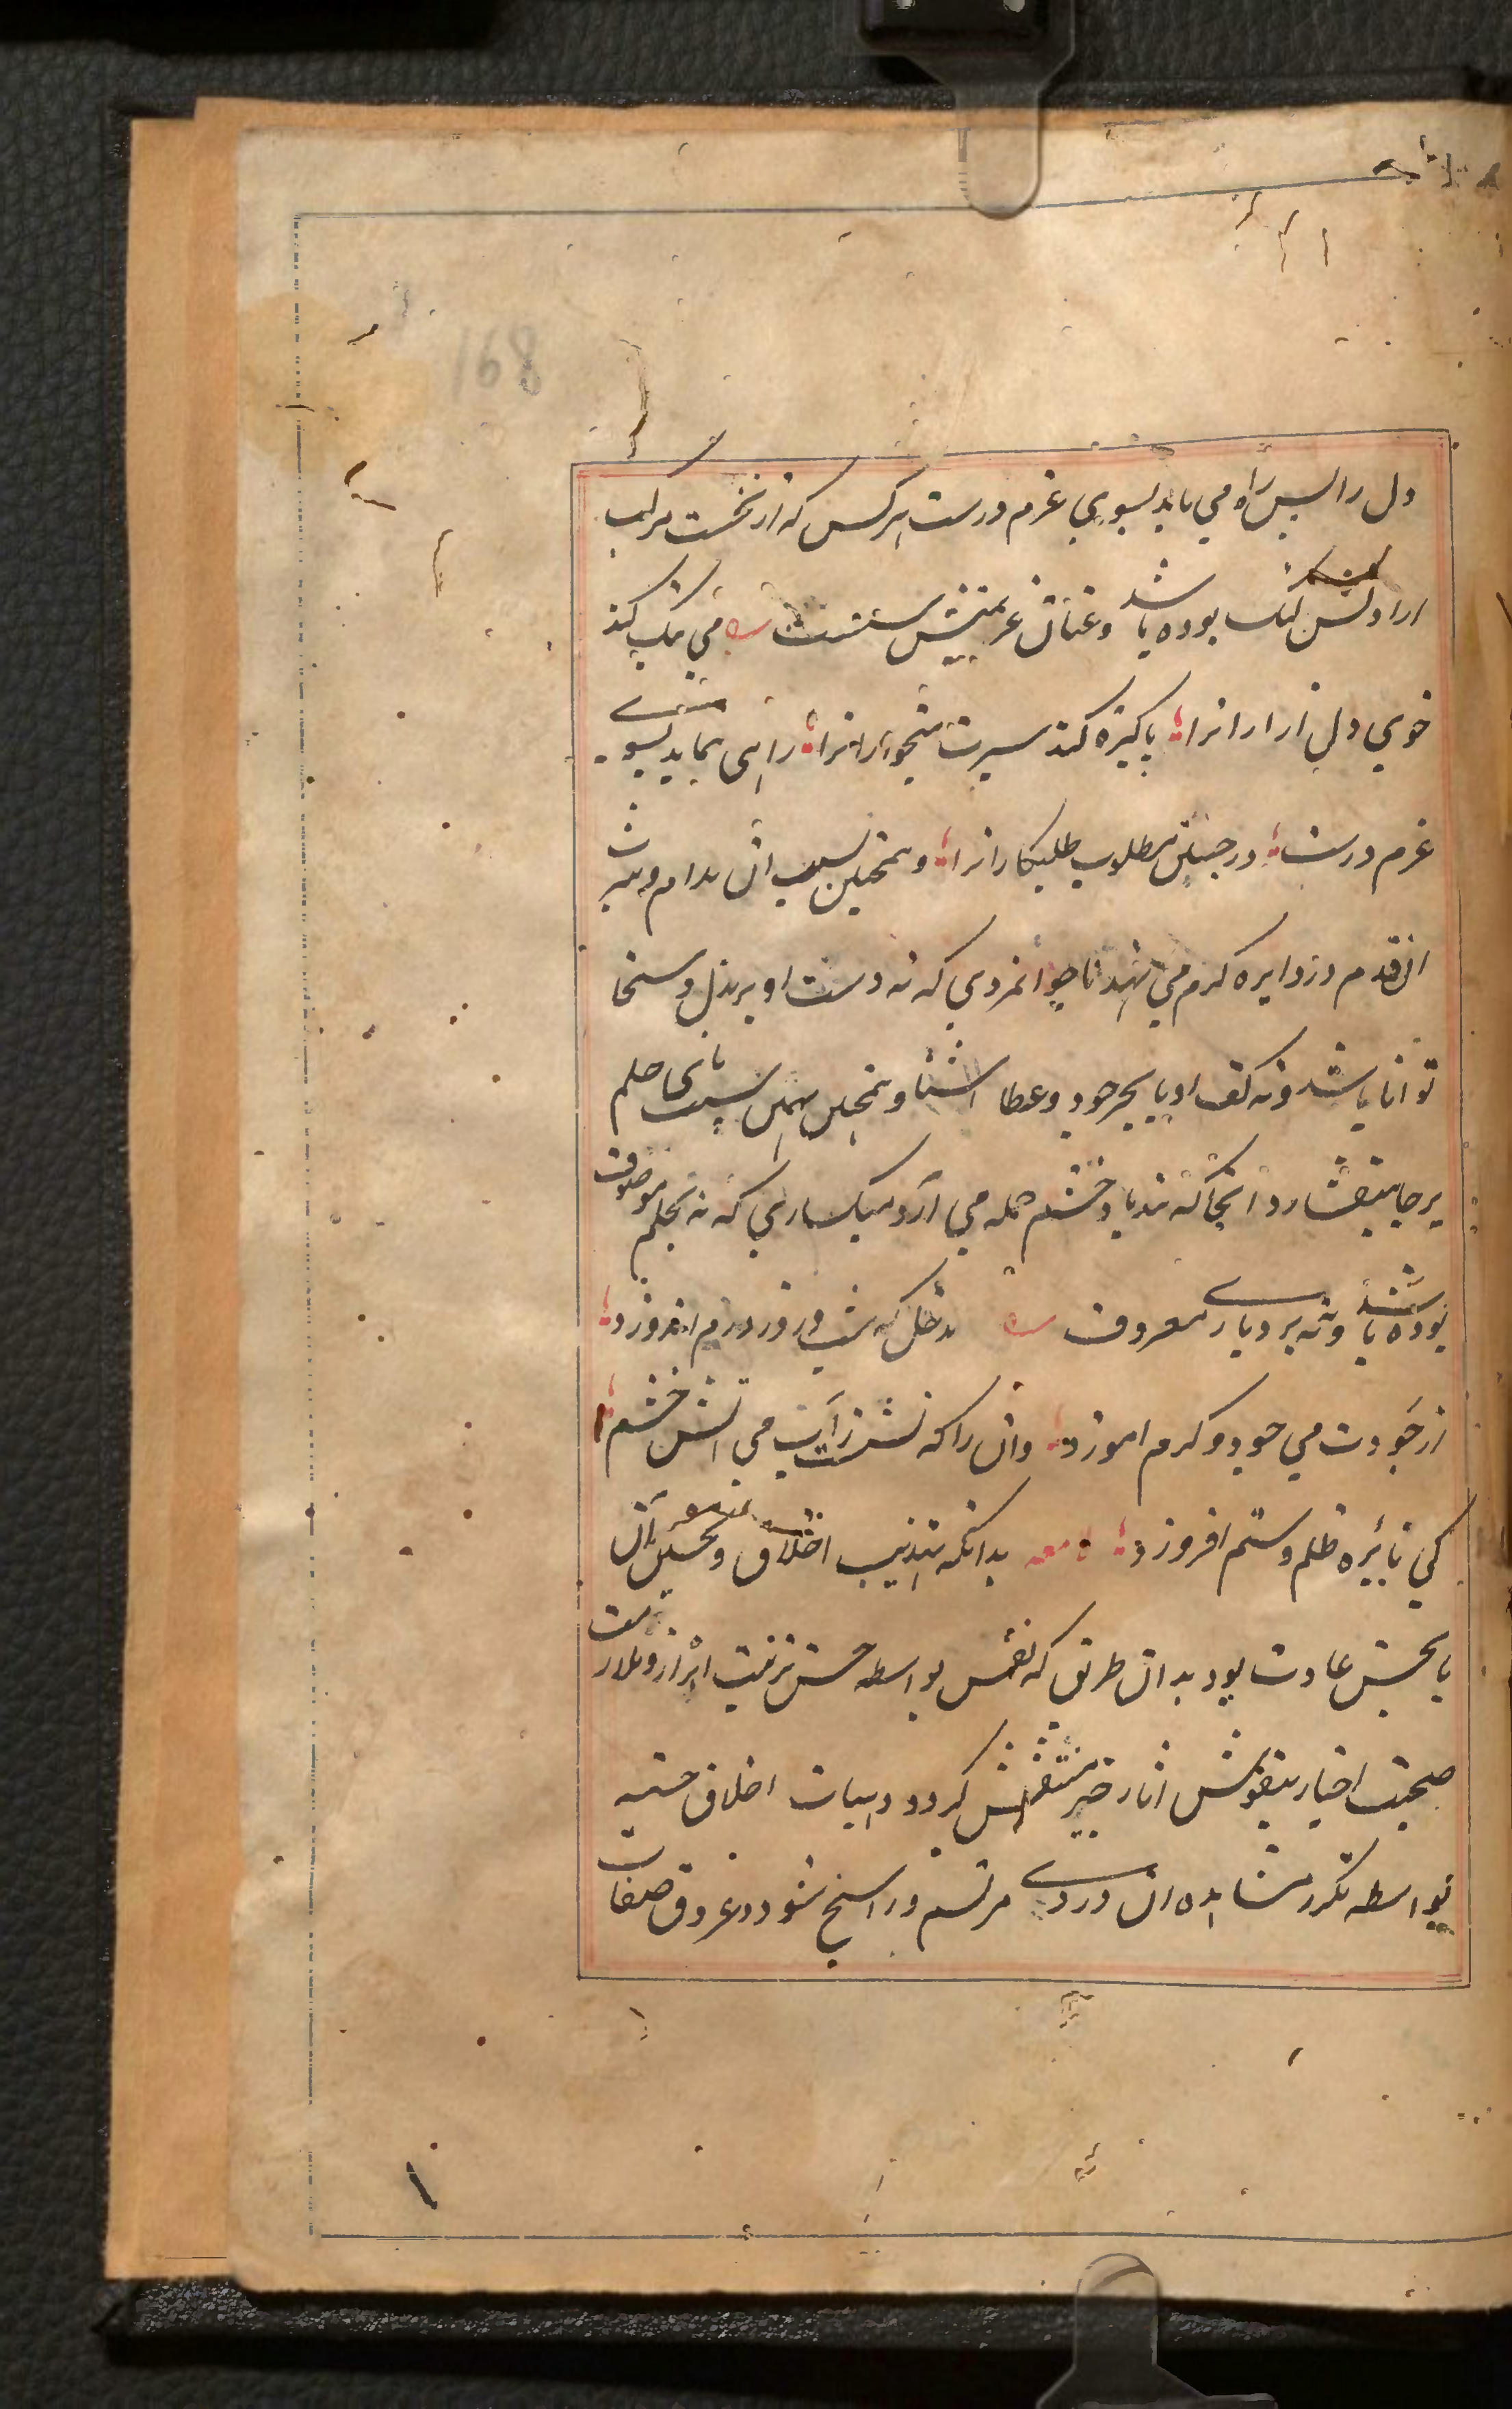 168
دل را لبس راه می یابد بسوی عزم درست هر کس که از نخست مرکب
ارادتش لنک بوده باشد و عنان عزیمتش سست می نیک کند
خوی دل از ارانرا پاکیزه کند سیرت میخوارانرا راهی نماید بسوی
عزم درست در جستن مطلوب طلبکارانرا و همچنین بسبب ان مدام
ان قدم در دایره کرم می نهد ناجوانمردی که نه دست او بر بذل و سخا
توانا باشد و نه کف او با بحر جود و عطا اشنا و همچنین بهمین سبب پای حلم
بر جا بیفشارد انجا که تندباد خشم حمله می آرد سبکساری که نه بحلم موصوف
بوده باشد و نه ببردباری معروف مدخل که شب و روز درم اندوزد
از جودت می جود و کرم اموزد وان را که نشست زآب می اتش خشم
کی نایره ظلم و ستم افروزد بدانکه تهذیب اخلاق و تحسین آن
یا بحسن عادت بود بدان طریق که نفس بواسطه حسن تربیت ابرار و ملازمت
صحبت اخیار بنقوش اثار خیر منتقش کردد و هیات اخلاق حسنه
بواسطه تکرر مشاهده ان در وی مرتسم و راسخ شود و عروق صفات